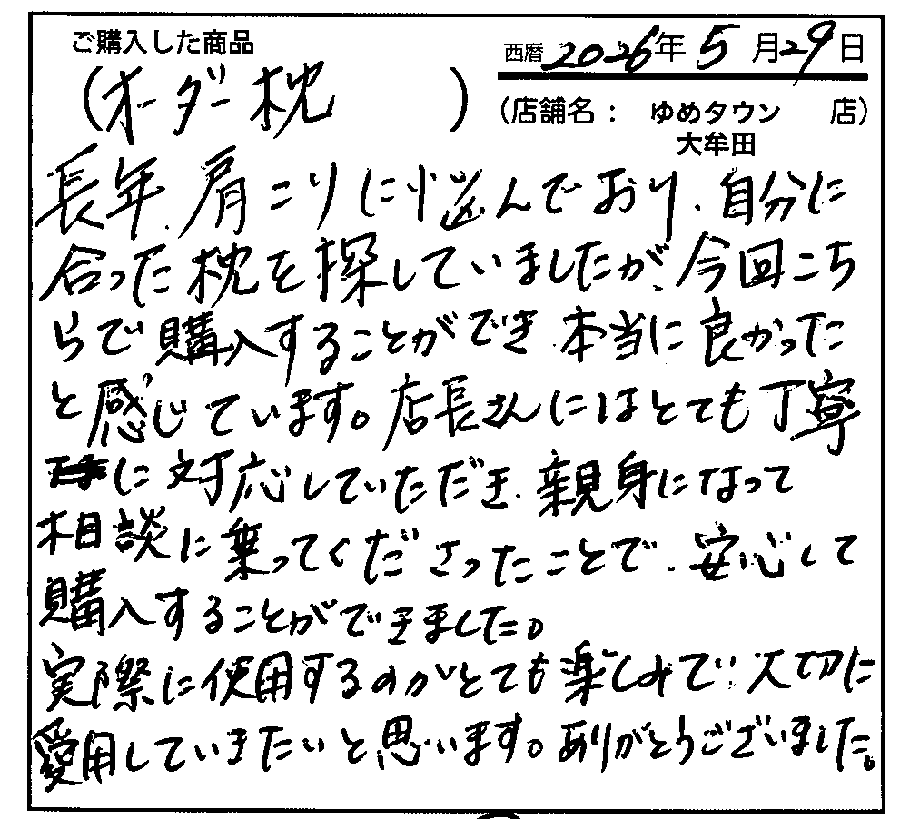 ご購入した商品
西暦2026年5月29日
(オーダー枕)
(店舗名：ゆめタウン 店)
大牟田
長年、肩こりに悩んでおり、自分に
合った枕を探していましたが、今回こち
らで購入することができ、本当に良かった
と感じています。店長さんにはとても丁寧
に対応していただき、親身になって
相談に乗ってくださったことで、安心して
購入することができました。
実際に使用するのがとても楽しみで、大切に
愛用していきたいと思います。ありがとうございました。